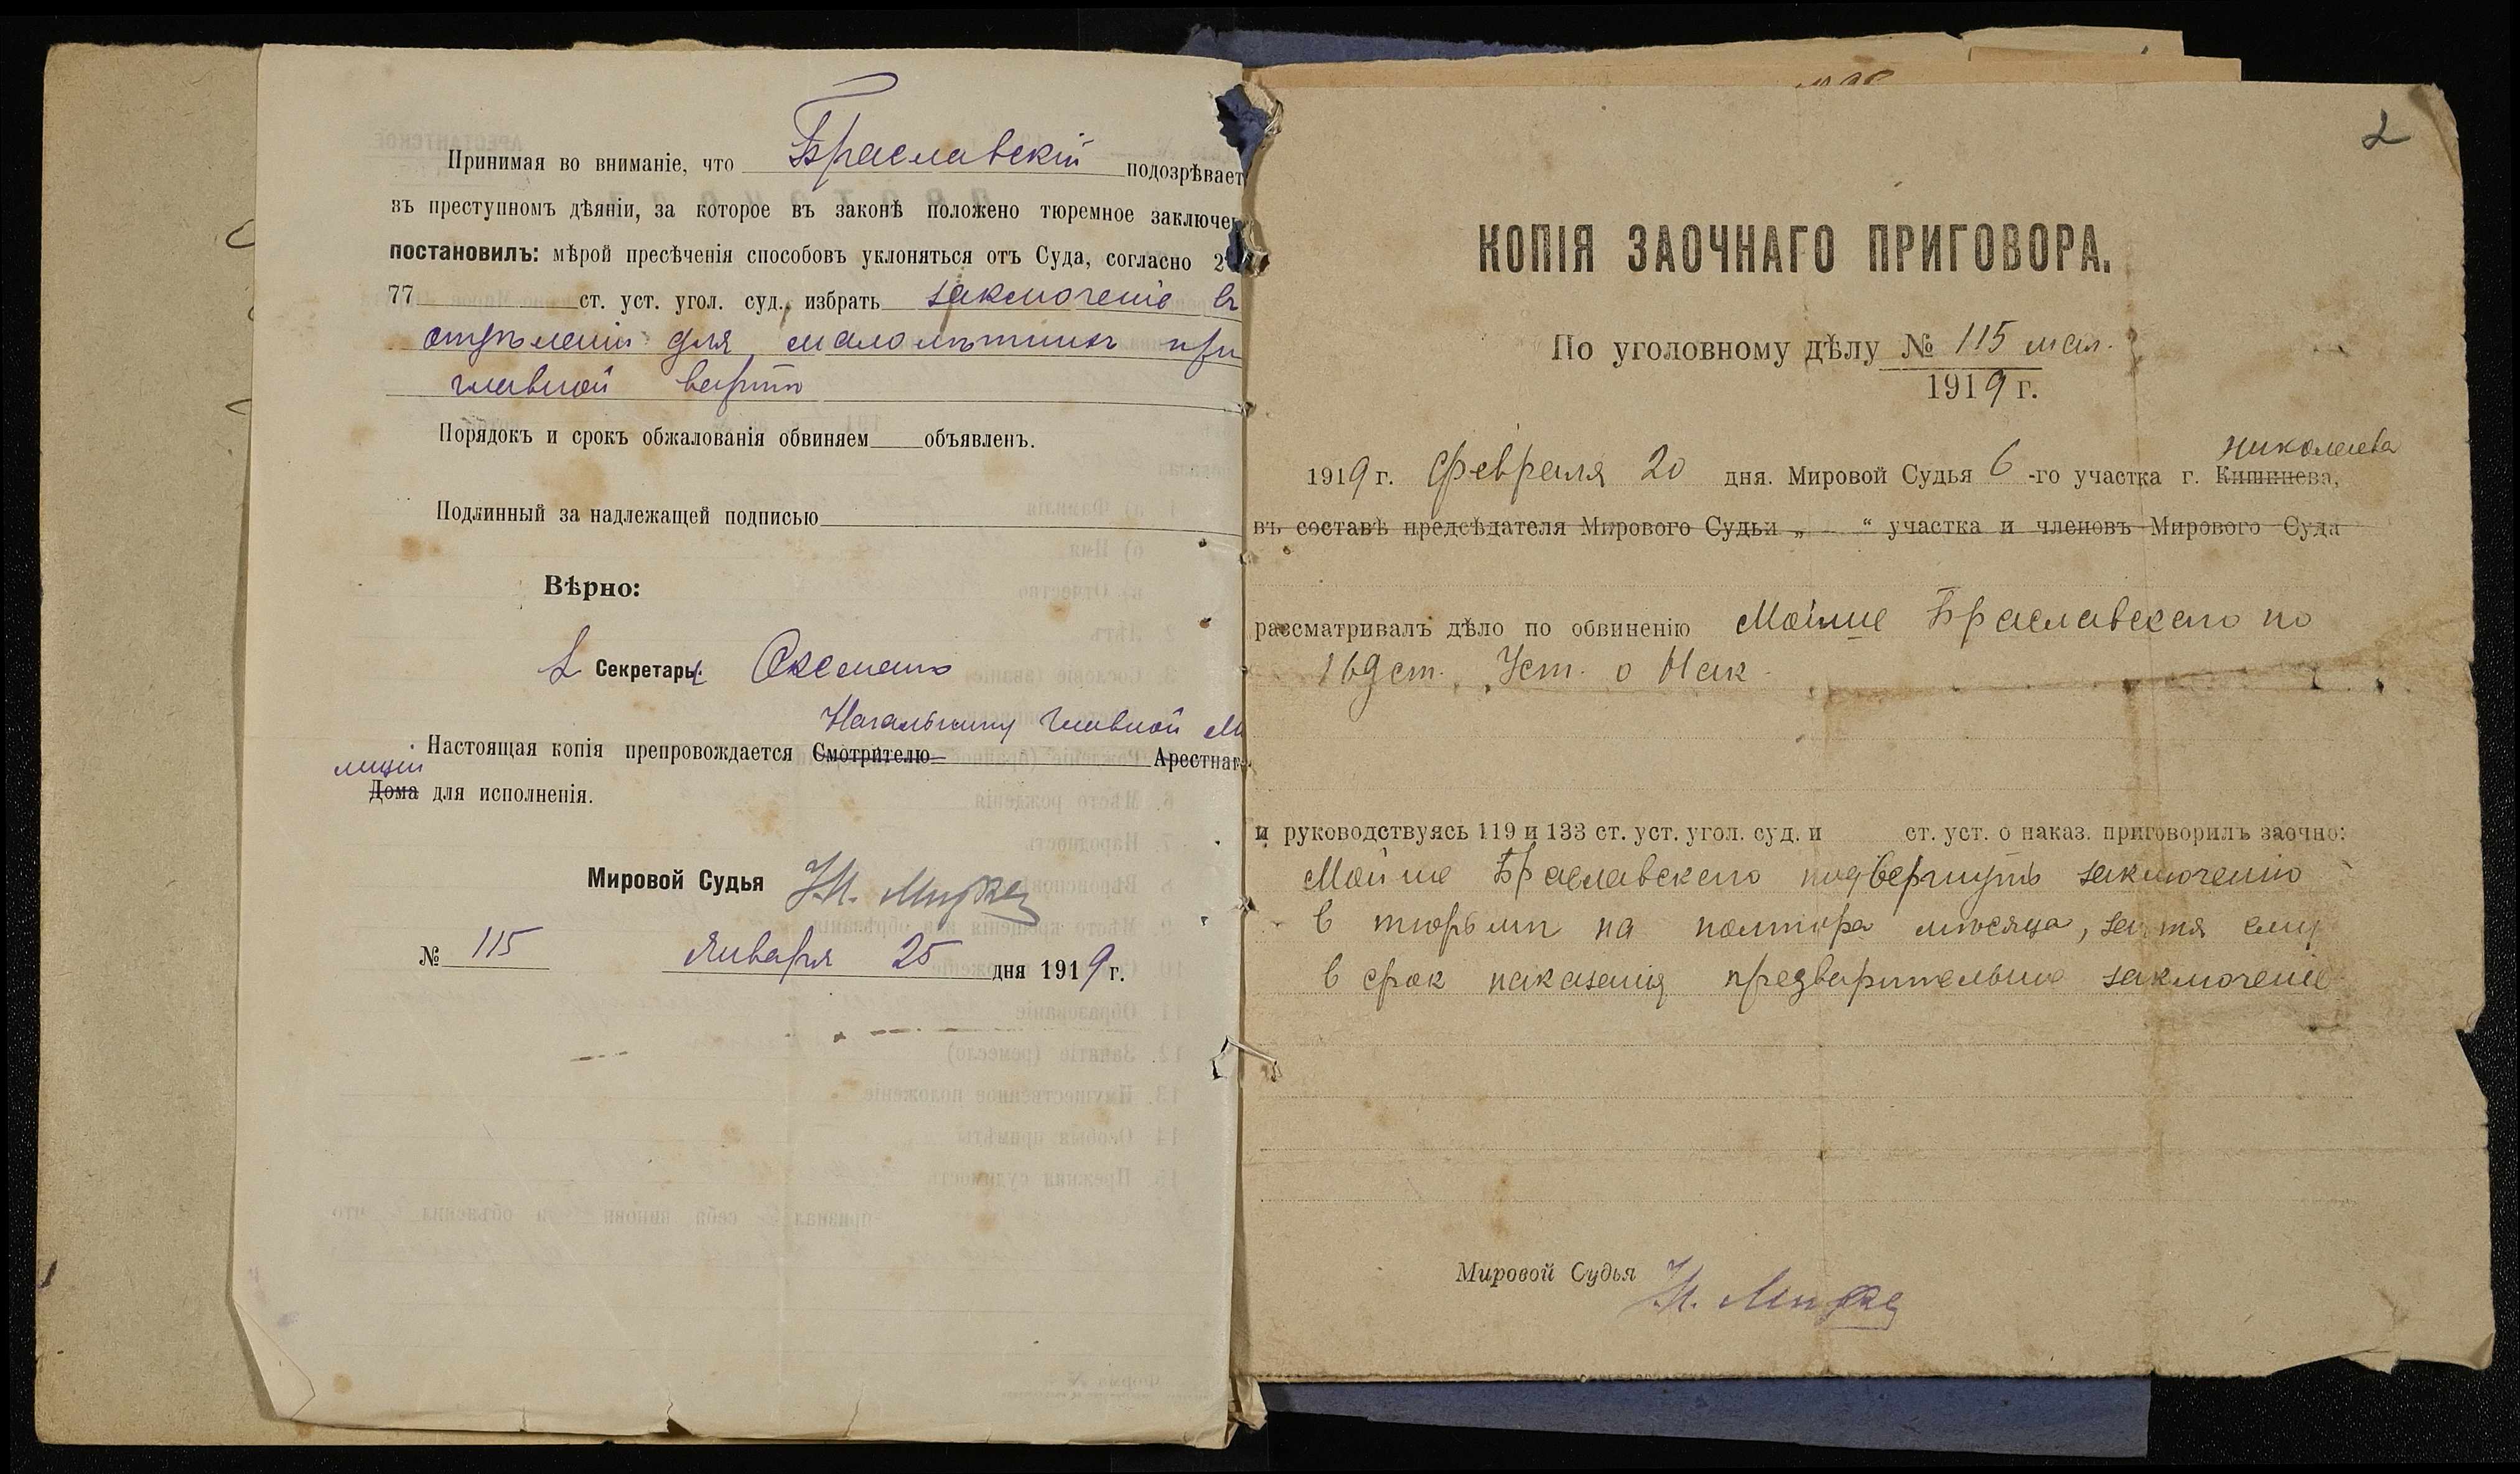 Принимая во вниманіе, что Браславскій подозрѣвает
въ преступномъ дѣяніи, за которое въ законѣ положено тюремное заключе
постановилъ: мѣрой пресѣченія способовъ уклоняться отъ Суда, согласно 2
77 ст. уст. угол. суд., избрать заключеніе въ
отдѣленіи для малолѣтнихъ при
главной вартѣ
Порядокъ и срокъ обжалованія обвиняем объявленъ.
Подлинный за надлежащей подписью
Вѣрно:
Секретарь
Начальнику Главной Ми
Настоящая копія препровождается Смотрителю Арестнаг
лиціи
Дома для исполненія.
Мировой Судья
№ 115 Января 25 дня 1919 г.
2
КОПІЯ ЗАОЧНАГО ПРИГОВОРА.
По уголовному дѣлу № 115 мал.
1919 г.
Николаева
1919 г. Февраля 20 дня. Мировой Судья 6-го участка г. Кишинева,
въ составѣ предсѣдателя Мирового Судьи „ “ участка и членовъ Мирового Суда
разсматривалъ дѣло по обвиненію Мойше Браславскаго по
169 ст. Уст. о Нак.
и руководствуясь 119 и 133 ст. уст. угол. суд. и ст. уст. о наказ. приговорилъ заочно:
Мойше Браславскаго подвергнуть заключенію
в тюрьмѣ на полтора мѣсяца, зачтя ему
в срок наказанія предварительное заключеніе
Мировой Судья